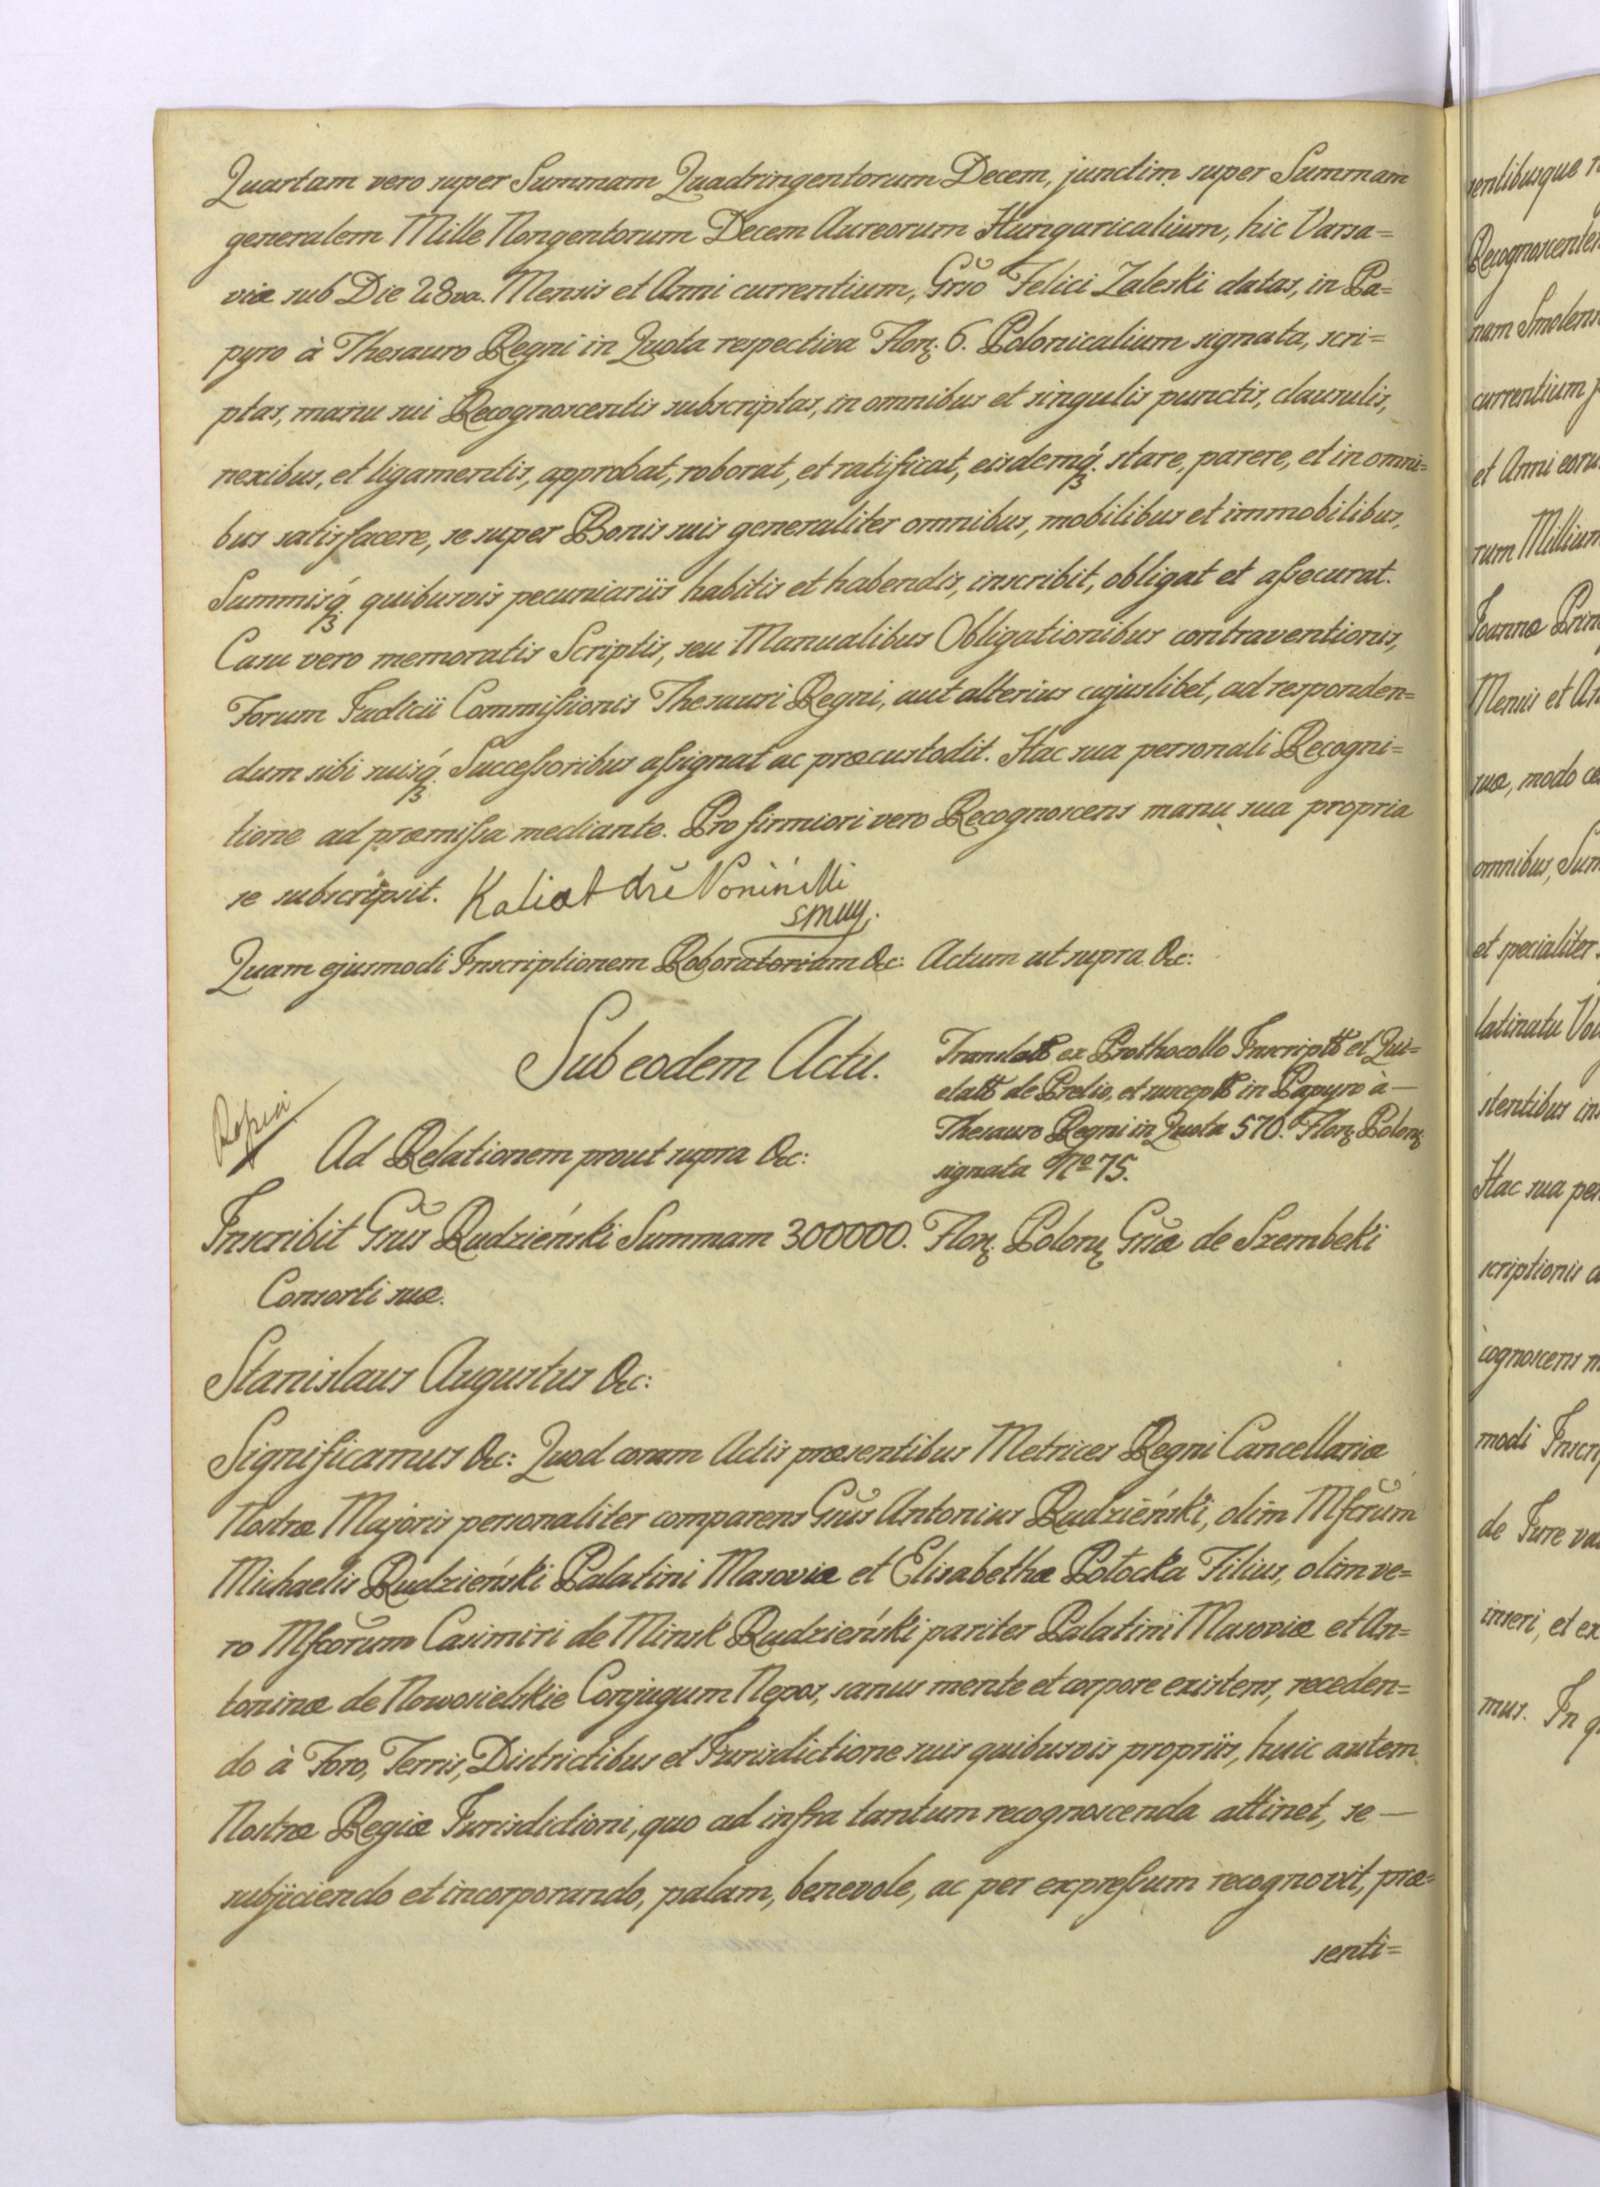 Quartam vero super Summam Quadringentorum Decem, junctim super Summam
generalem Mille Nongentorum Decem Aureorum Hungaricalium, hic Varsa=
viæ sub Die 28va. Mensis et Anni currentium, Grso Felici Zaleski datas, in Pa=
pyro à Thesauro Regni in Quota respectiva Flor: 6. Polonicalium signata, scri=
ptas, manu sui Recognoscentis subscriptas, in omnibus et singulis punctis, clausulis,
nexibus, et ligamentis, approbat, roborat, et ratificat, eisdemq́; stare, parere, et in omni=
bus satisfacere, se super Bonis suis generaliter omnibus, mobilibus et immobilibus,
Summisq́; quibusvis pecuniariis habitis et habendis, inscribit, obligat et aſsecurat.
Casu vero memoratis Scriptis, seu Manualibus Obligationibus contraventionis,
Forum Judicii Commiſsionis Thesauri Regni, aut alterius cujuslibet, ad responden=
dum sibi suisq́; Succeſsoribus aſsignat ac præcustodit. Hac sua personali Recogni=
tione ad præmiſsa mediante. Pro firmiori vero Recognoscens manu sua propria
se subscripsit.
Quam ejusmodi Inscriptionem Roboratoriam &c: Actum ut supra &c:
Sub eodem Actu.
Translatt ex Prothocollo Inscriptt et Qui=
etatt de Prelio, et susceptt in Papyro à —
Thesauro Regni in Quota 570. Flor: Polon:
signata No 75.
Ad Relationem prout supra &c:
Inscribit Grsus Rudzieński Summam 300000. Flor: Polon: Grsæ de Szembeki
Consorti suæ.
Stanislaus Augustus &c:
Significamus &c: Quod coram Actis præsentibus Metrices Regni Cancellariæ
Nostræ Majoris personaliter comparens Grsus Antonius Rudzieński, olim Mfcrum
Michaelis Rudzieński Palatini Masoviæ et Elisabethæ Potocka Filius, olim ve=
ro Mfcorum Casimiri de Minsk Rudzieński pariter Palatini Masoviæ et An=
toninæ de Nowosielskie Conjugum Nepos, sanus mente et corpore existens, receden=
do à Foro, Terris, Districtibus et Jurisdictione suis quibusvis propriis, huic autem
Nostræ Regiæ Jurisdictioni, quo ad infra tantum recognoscenda attinet, se —
subjiciendo et incorporando, palam, benevole, ac per expreſsum recognovit, præ=
senti=